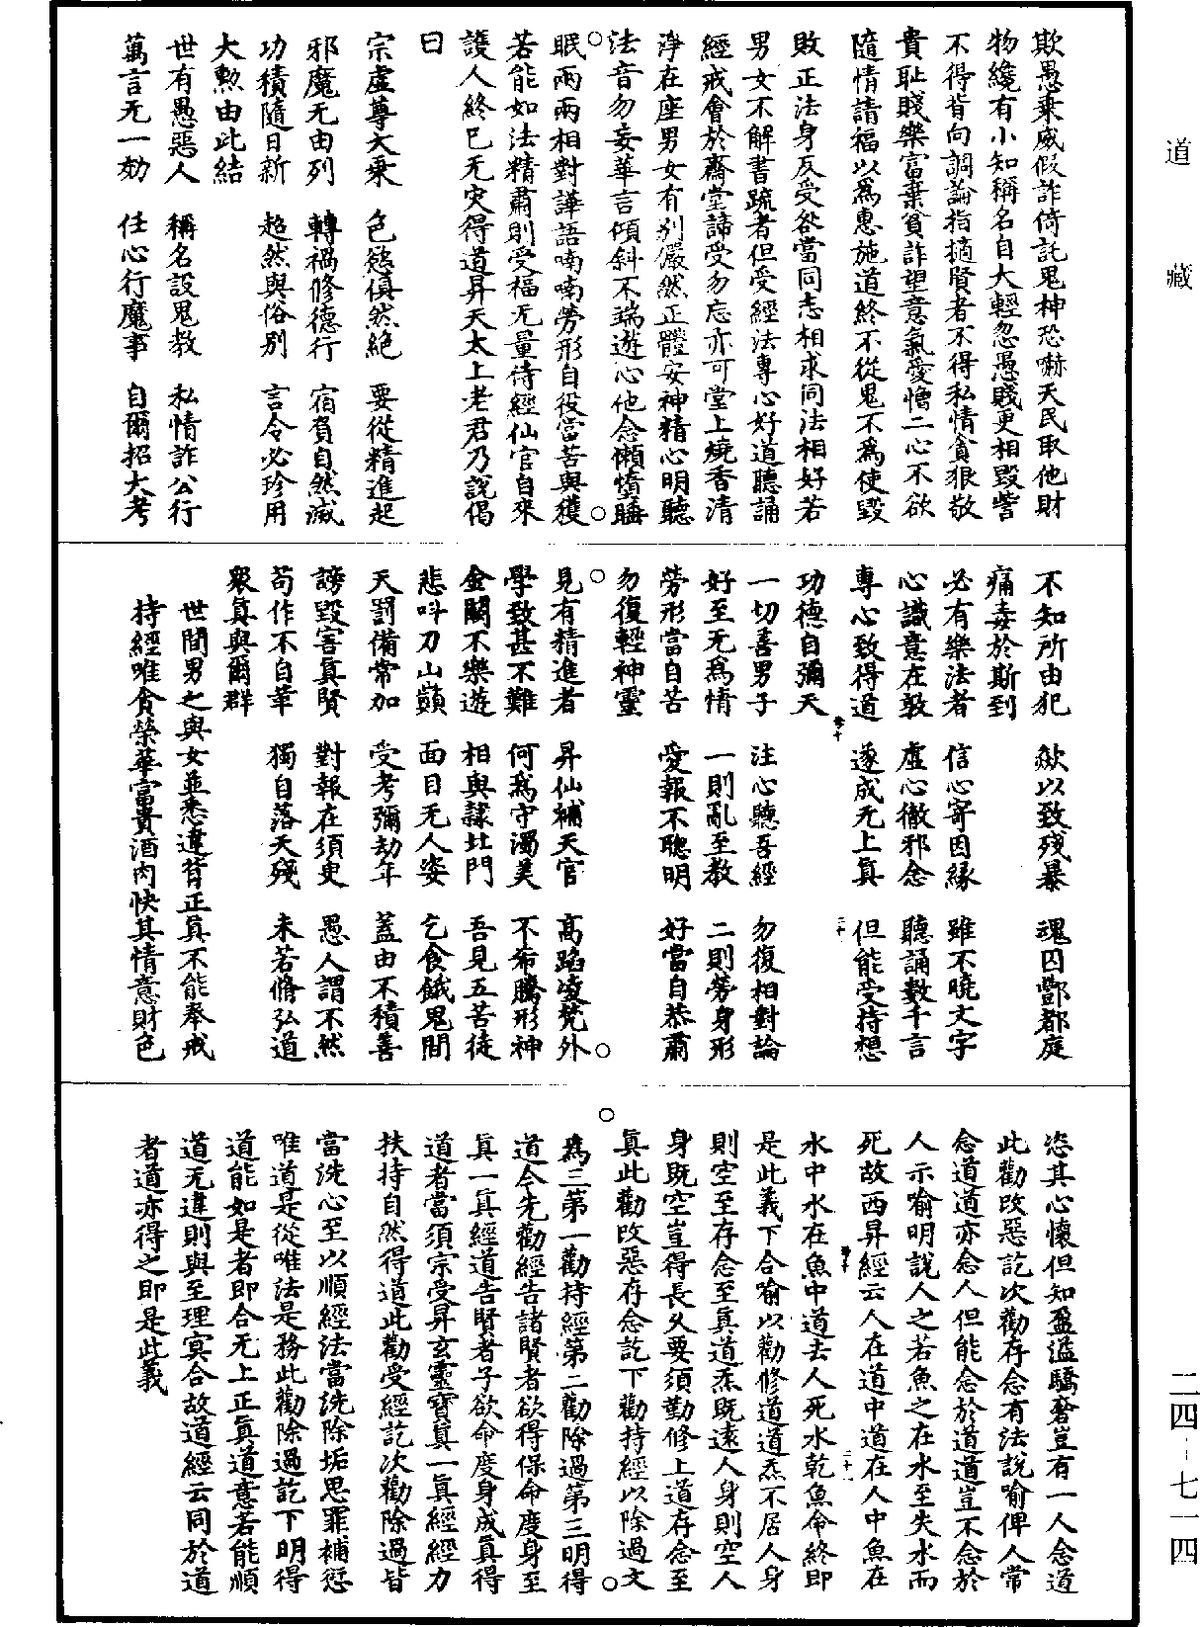 道藏
欺愚乘威假詐倚託鬼神恐嚇天民取他財
物纔有小知稱名自大輕忽愚賤更相毀訾
不得背向調論指擿賢者不得私情貪狠敬
貴恥賤樂富棄貧詐望意氣愛憎二心不欲
隨情請福以爲惠施道終不從鬼不爲使毀
敗正法身反受咎當同志相求同法相好若
男女不解書疏者但受經法專心好道聽誦
經戒會於齋堂諦受勿忘亦可堂上燒香清
淨在座男女有別儼然正體安神精心明聽
法音勿妄華言傾斜不端遊心他念懶惰睡
眠兩兩相對譁語喃喃勞形自役當苦與獲
若能如法精肅則受福无量侍經仙官自來
護人終已无灾得道昇天太上老君乃說偈
曰
宗虛尊大乘 色慾傎然絕 要從精進起
邪魔无由列 轉禍修德行 宿負自然滅
功積隨日新 超然與俗別 言令必珍用
大勲由此結
世有愚惡人 稱名設鬼教 私情詐公行
萬言无一効 任心行魔事 自爾招大考
不知所由犯 欻以致殘暴 魂囚酆都庭
痛毒於斯到
必有樂法者 信心寄因緣 雖不曉文字
心識意在敎 虛心徹邪念 聽誦數千言
專心致得道 遂成无上真 但能受持想
功德自彌天
一切善男子 注心聽吾經 勿復相對論
好至无爲情 一則亂至教 二則勞身形
勞形當自苦 愛報不聰明 好當自恭肅
勿復輕神靈
見有精進者 昇仙補天官 高蹈凌梵外
學致甚不難 何爲守濁美 不希騰形神
金闕不樂遊 相與隸北門 吾見五苦徒
悲呌刀山巔 面目无人姿 乞食餓鬼間
天罰備常加 受考彌劫年 蓋由不積善
謗毀害真賢 對報在須臾 愚人謂不然
苟作不自革 獨自落夭殘 未若脩弘道
衆真與爾群
世間男之與女並悉違背正真不能奉戒
持經唯貪榮華富貴酒肉快其情意財色
恣其心懷但知盈溢驕奢豈有一人念道
此勸改惡訖次勸存念有法說喻俾人常
念道道亦念人但能念於道道豈不念於
人示喻明說人之若魚之在水至失水而
死故西昇經云人在道中道在人中魚在
水中水在魚中道去人死水乾魚命終即
是此義下合喻以勸修道道炁不居人身
則空至存念至真道炁既遠人身則空人
身既空豈得長久要須勤修上道存念至
真此勸改惡存念訖下勸持經以除過文
爲三第一勸持經第二勸除過第三明得
道今先勸經告諸賢者欲得保命度身至
真一真經道告賢者子欲命度身成真得
道者當須宗受昇玄靈寶真一真經經力
扶持自然得道此勸受經訖次勸除過皆
當洗心至以順經法當洗除垢思罪補愆
唯道是從唯法是務此勸除過訖下明得
道能如是者即合无上正真道意若能順
道无違則與至理冥合故道經云同於道
者道亦得之即是此義
二四-七一四